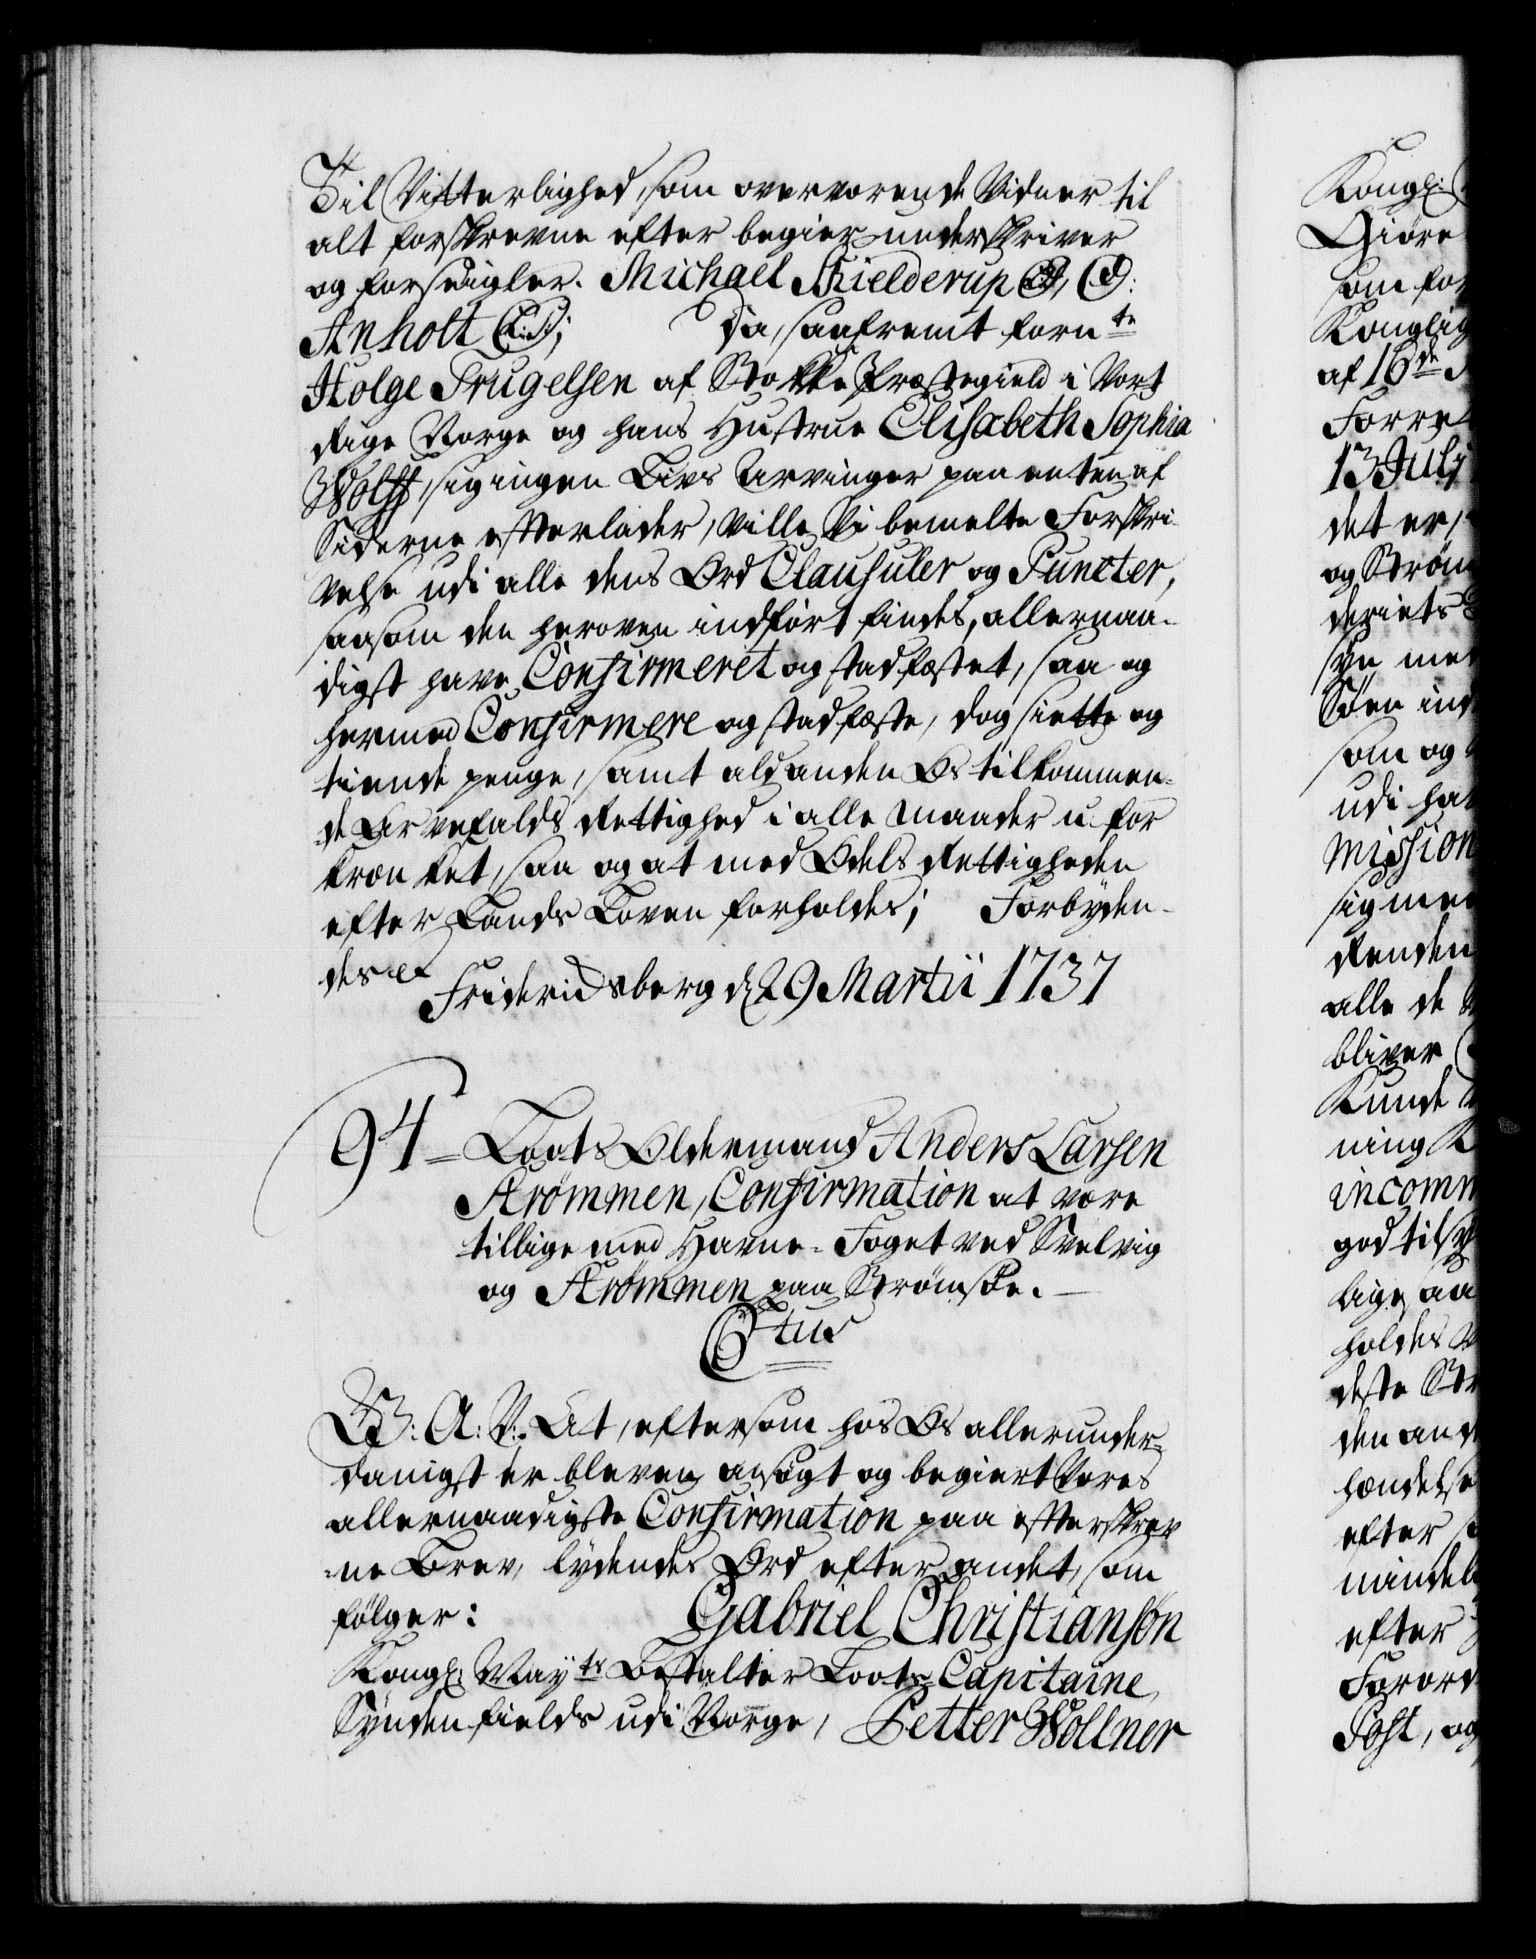 Til Vitterlighed, som overværende Vidner til
alt forskrevne efter begier underskriver
og forseigler. Michael Skielderup (L.S.) C:
Anholt (L:S:); Da, saafremt forn.te
Holge Trugelsen af Stokke Præstegield i Vort
Rige Norge og hans Hustrue Elisabeth Sophia
Wolff, sig ingen Livs Arvinger paa enten af
Siderne efterlader, ville Vi bemelte Forskri-
velse udi alle dens Ord Clausuler og Puncter,
saasom den heroven indført findes, allernaa-
digst have Confirmeret og stadfæstet, saa og
hermed Confirmere og stadfæste, dog siette og
tiende penge, samt ald anden Os tilkommen-
de Arvefalds Rettighed i alle Maader u-for
krænket, saa og at med Odels Rettigheden
efter Lands Loven forholdes; Forbyden-
des etc
Friderichsberg d. 29 Martii 1737
94 = Loots Oldermand Anders Larsen
Strømmen, Confirmation at være
tillige med Havne-Foget ved Svelvig
og Strømmen paa Strømsøe.
Ctus
G: A: V: At, eftersom hos Os allerunder-
danigst er bleven ansøgt og begiert Vores
allernaadigste Confirmation paa efterskrev
-ne Brev, lydendes Ord efter andet, som
følger: Gabriel Christiansøn
Kongl: May.ts Bestalter Loots-Capitaine,
Synden fields udi Norge, Petter Wollner
Kongl:
Giøre
som for
Konglig
af 16de
Forret
13 Julj
det er,
og Strøm
deriets
syn med
Søen ind
som og
udi hav
mission
sig med
Renden
alle de
bliver
Kunde
ning
incomm
god tilsy
lige saa
holdes
deste Str
den and
hændelse
efter
mindel
efter
Forord
Post, og